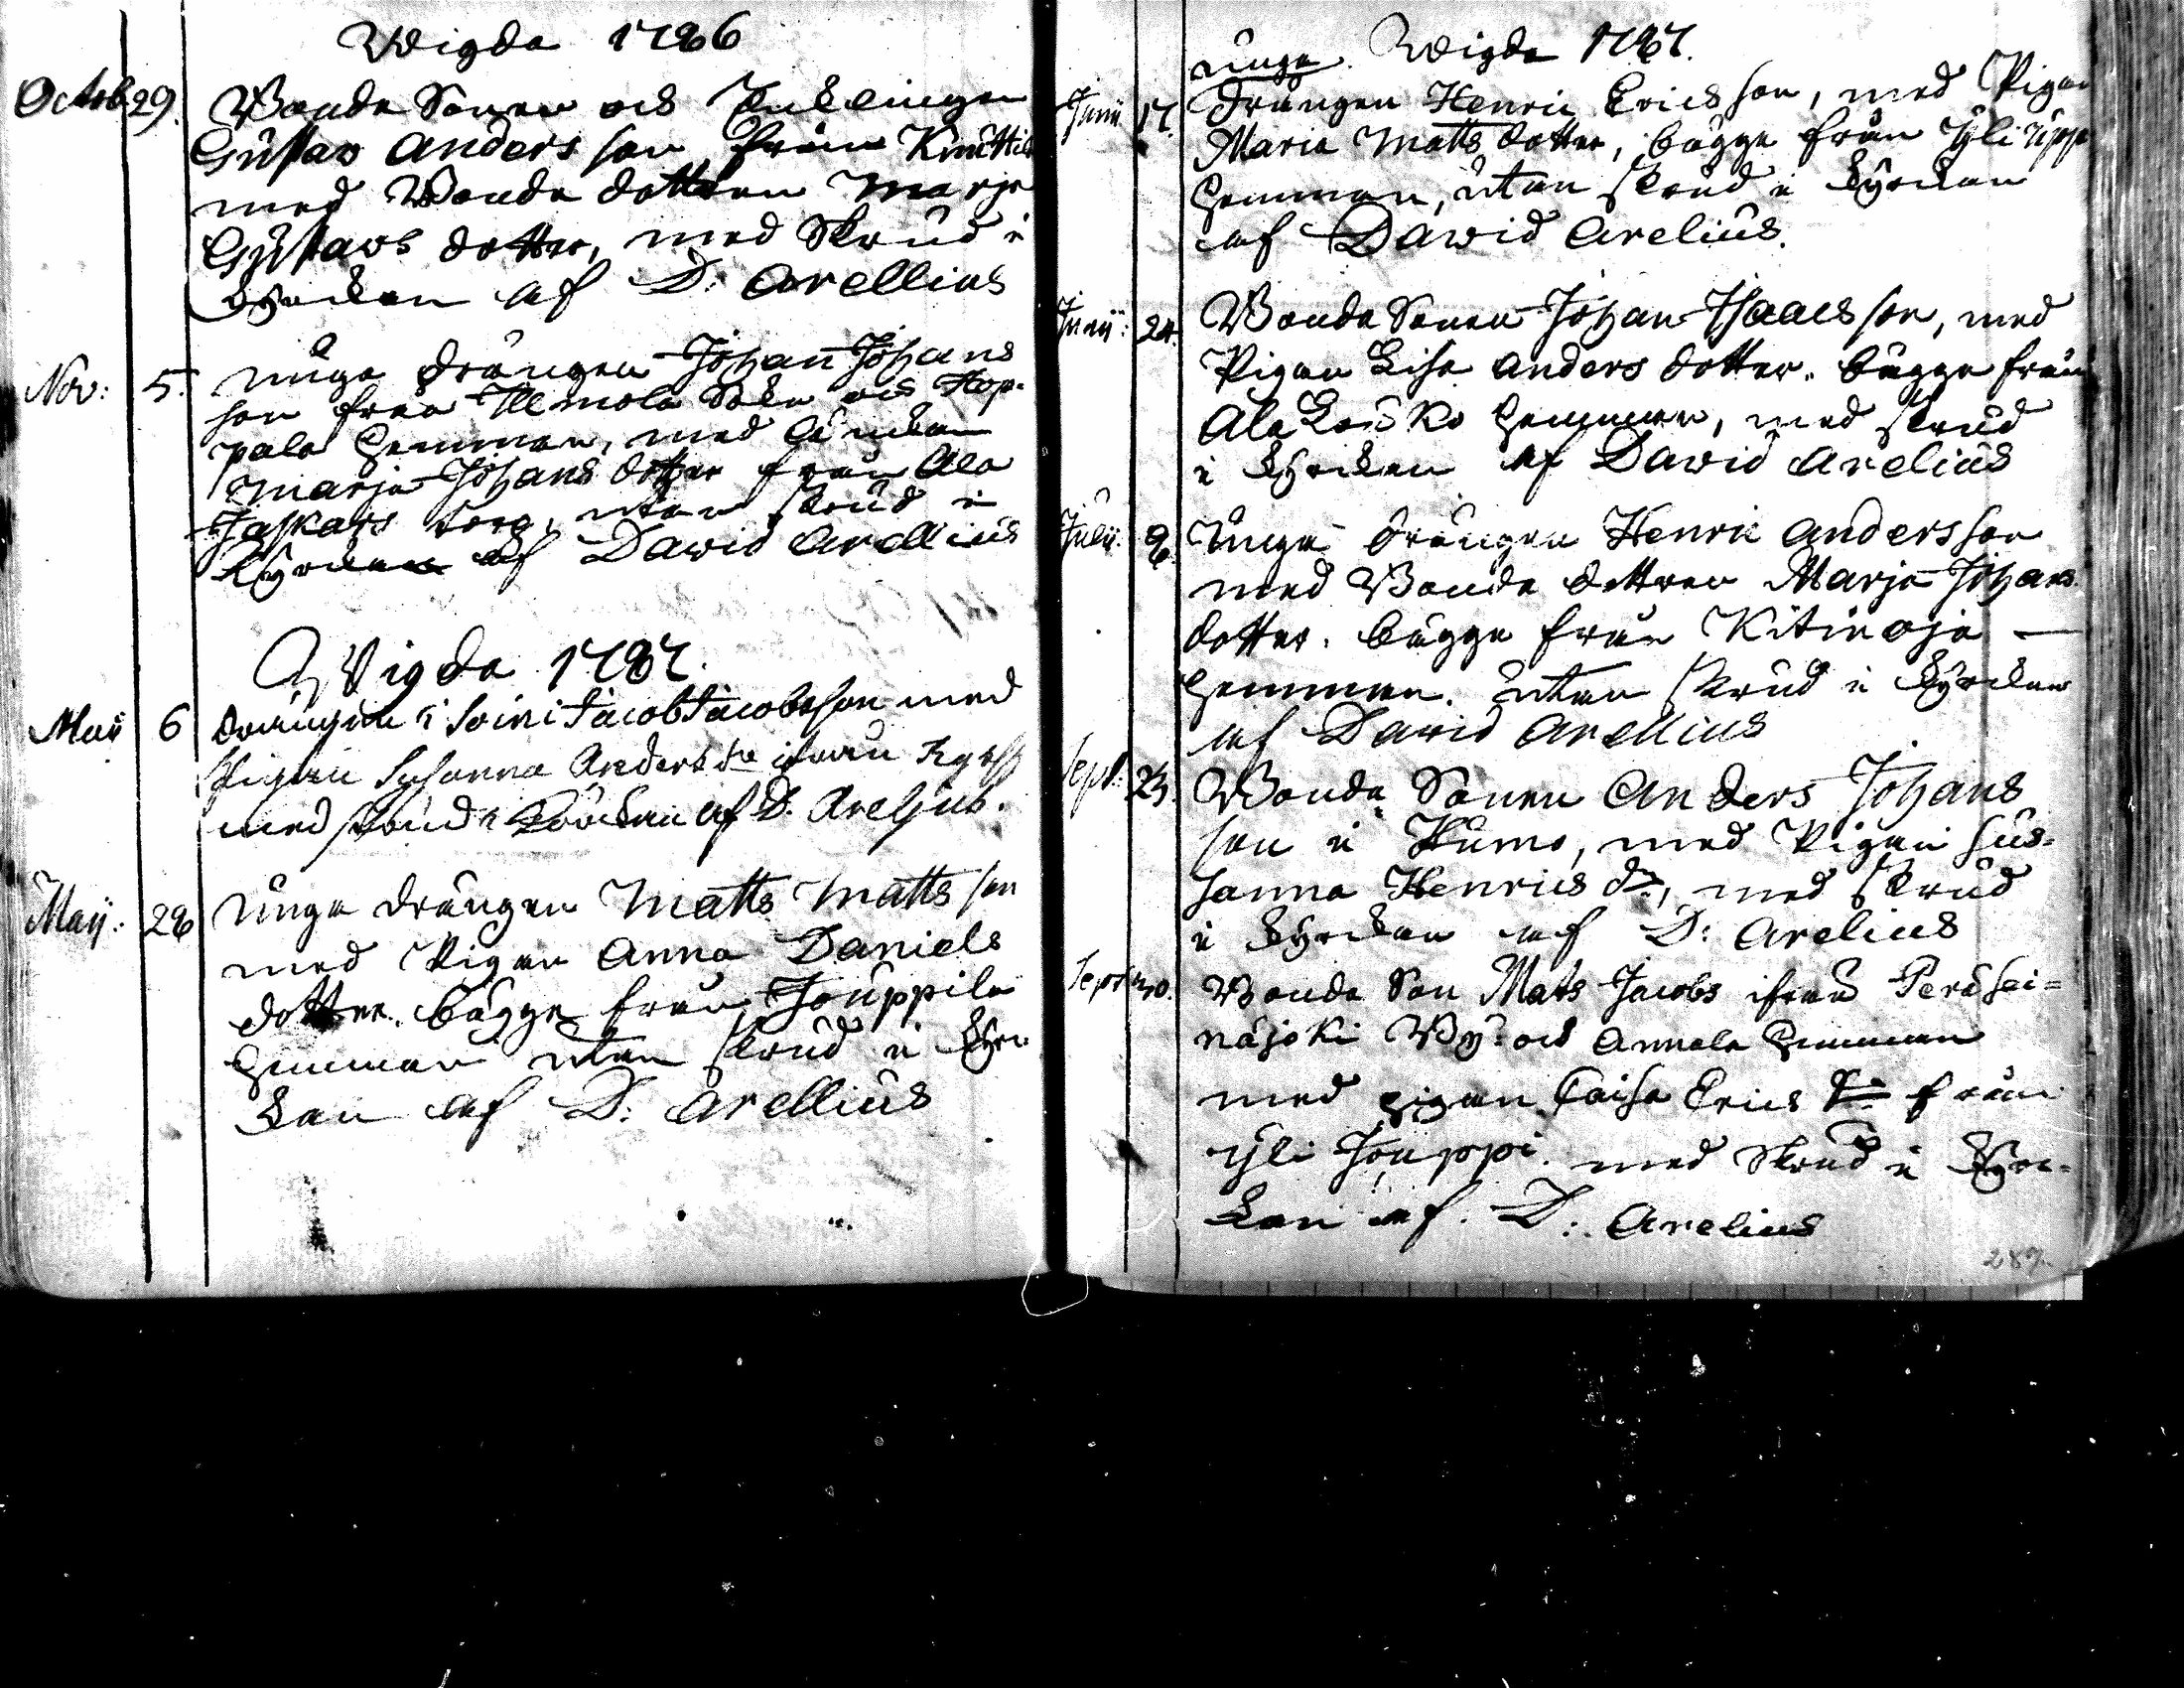 Wigda 1786
Octob 29. Bonde Sonen och Enklingen
Gustav Andersson från Knuttila
med Bonde dottren Marja
Gustavs dotter, med Skrud i
Kyrckan af D: Arellius
Nov: 5. unge drängen Johan Johans
son från Ilmola Sokn och Hop-
pala Hemman, med änckan
Marja Johans dotter från Ala
Jaskars torp, utan skrud i
Kyrckan af David Arellius
Wigda 1787.
Maii 6 drängen i Soini Jacob Jacobsson med
Pigan Susanna Anders dr ifrån
med skrud i Körckan af D. Areljus.
Maij: 28 Unge drängen Matts Mattsson
med Pigan Anna Daniels
dotter. bägge från Jouppila
Hemman utan skrud i Kyrc-
kan af D: Arellius
unge. Wigda 1787.
Junii 17. drängen Henric Ericsson, med Pigan
Maria Matts dotter, bägge från Yli Upp
Hemman, utan skrud i Kyrckan
af David Arelius.
Junij: 24. Bonde Sonen Johan Isaacsson, med
Pigan Lisa Anders dotter. bägge från
Ala Louko Hemman, med skrud
i Kyrckan af David Arelius
Julij: 8. Unge drängen Henric Andersson
med Bonde dottren Marja Johans
dotter. bägge från Kitinoja —
Hemman. utan skrud i Kyrckan
af David Arellius
Sept: 23. Bonde Sonen Anders Johans
son i Kumo, med Pigan Sus-
sanna Henrics dr, med skrud
i Kyrckan af D: Arelius
Sept: 30. Bonde Son Mats Jacobs ifrån Peräsei=
näjoki By: och Annala Hemman
med pigan Caisa Erics dr från
Yli Jouppi. med Skrud i Kyrc-
kan af. D: Arelius
287.